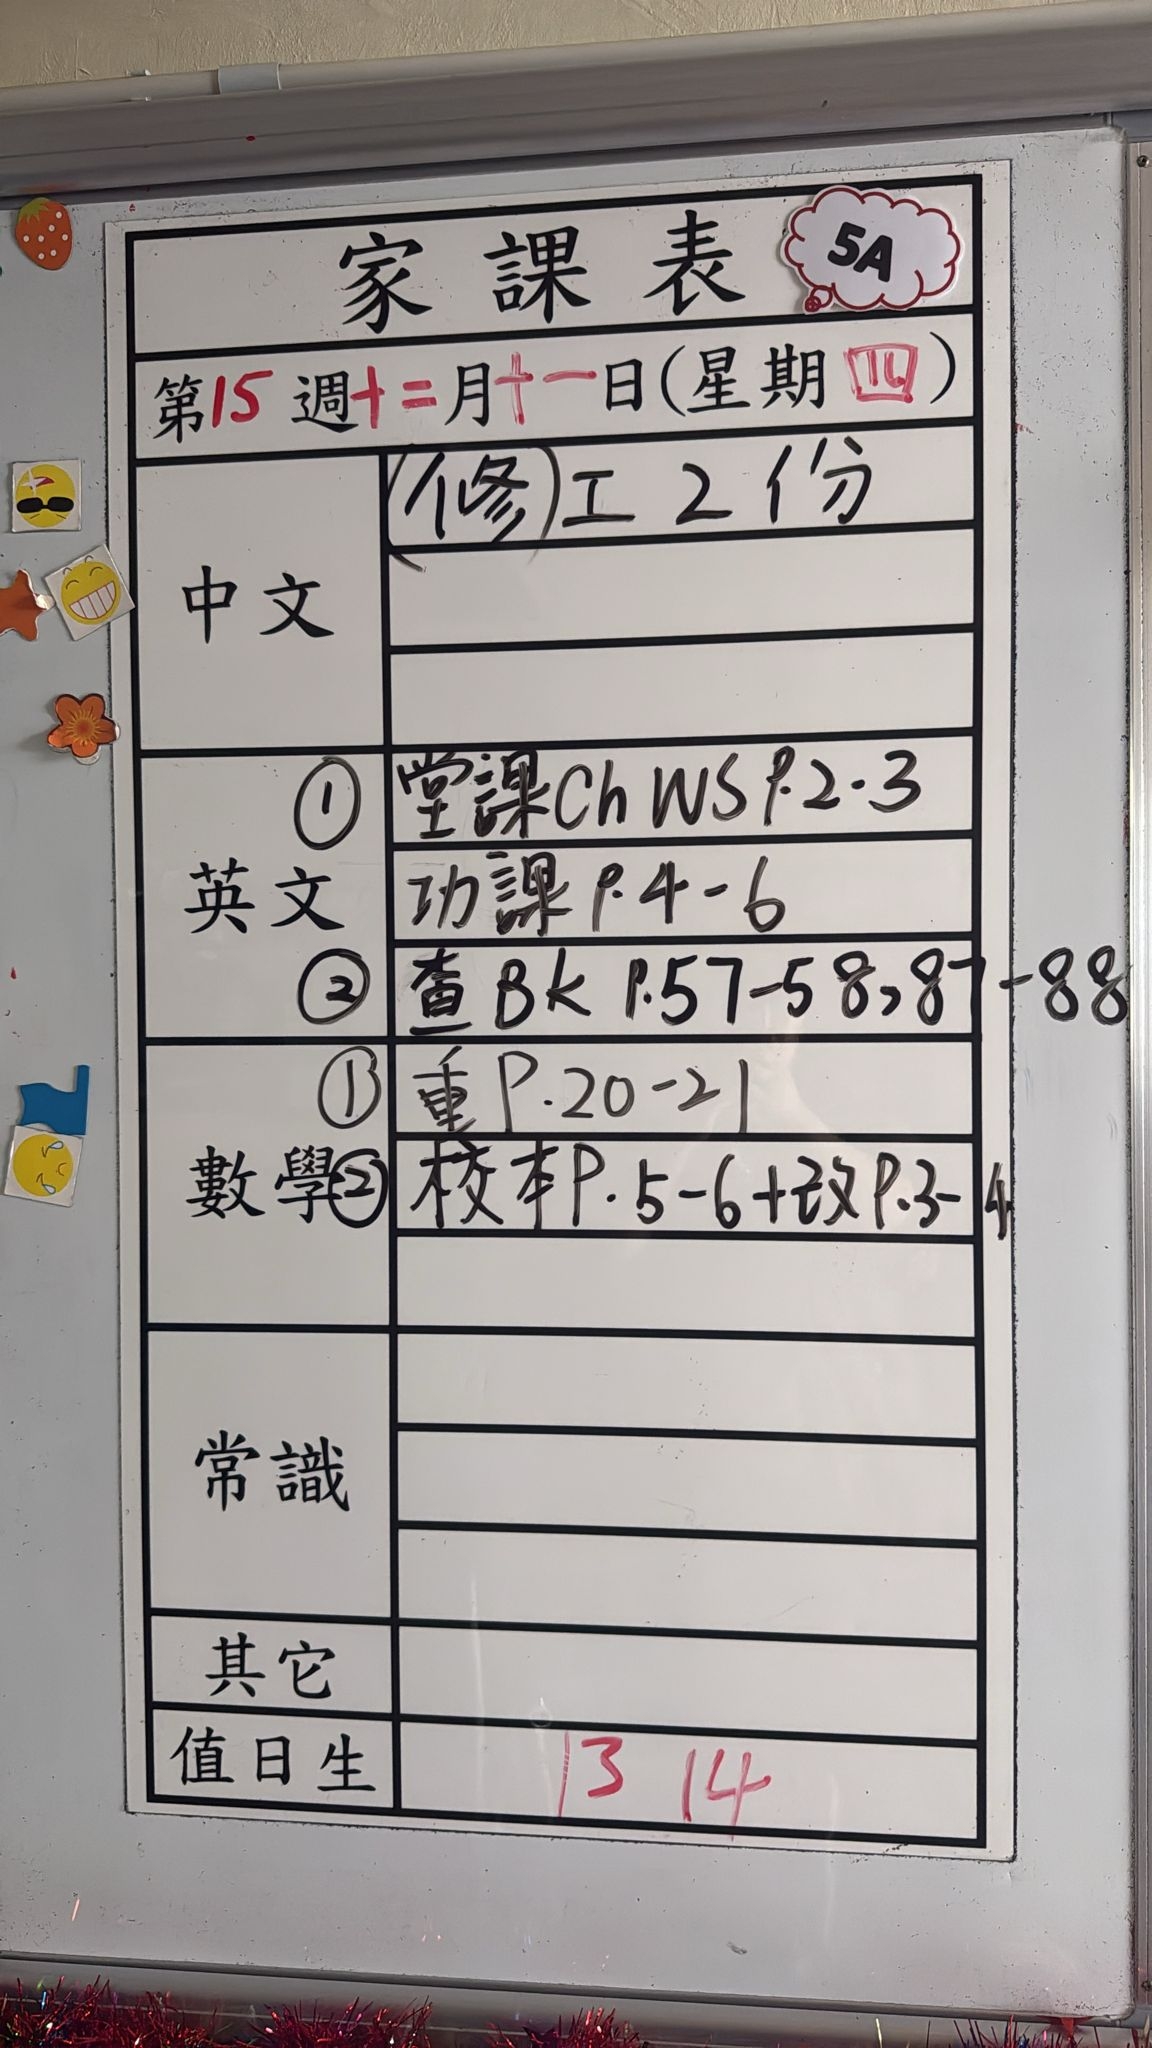 家課表 5A
第15週十二月十一日(星期四)
中文
(修)工2份
英文
① 堂課Ch WS P.2-3
功課P.4-6
② 查BK P.57-58,87-88
數學
① 重P.20-21
② 校本P.5-6+改P.3-4
常識
其它
值日生 13 14